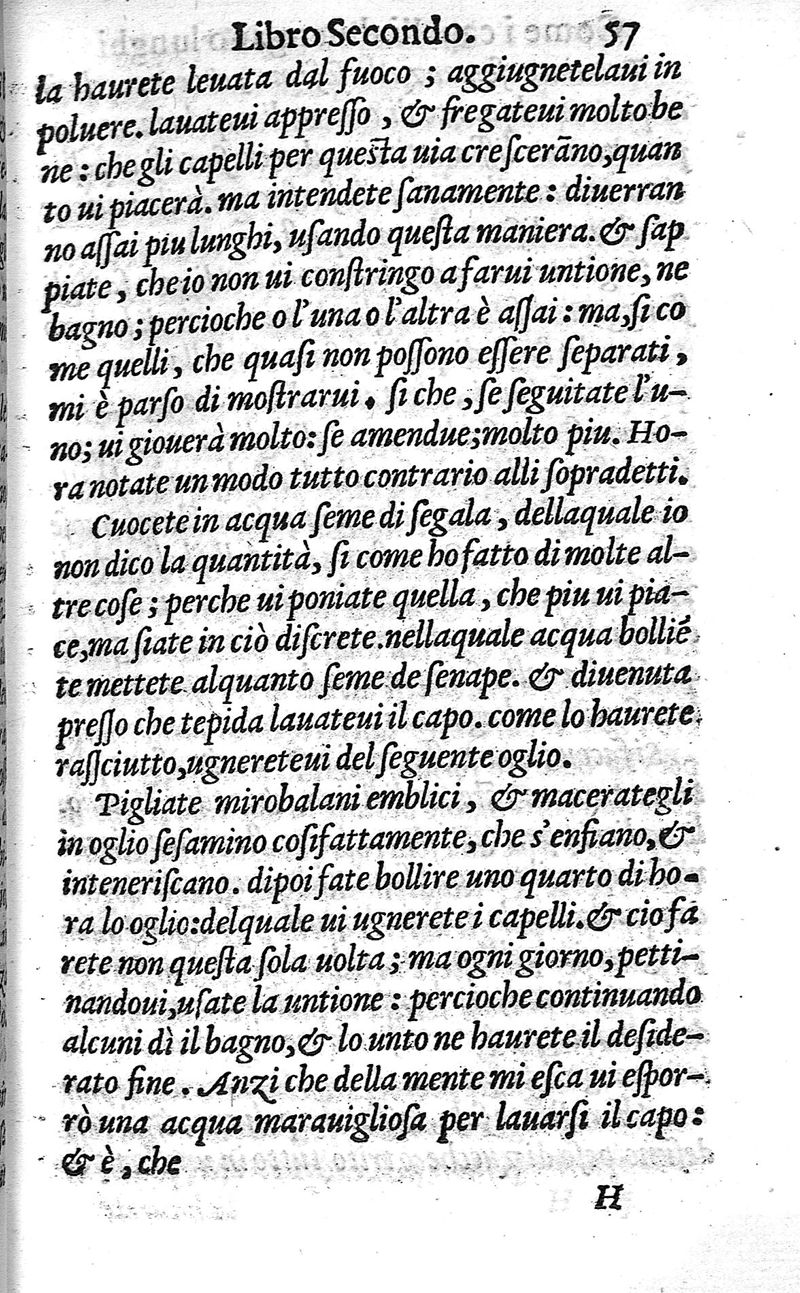 Libro Secondo. 57
la haurete leuata dal fuoco ; aggiugnetelaui in
poluere. lauateui appreſſo , & fregateui molto be
ne : che gli capelli per queſta uia creſcerãno, quan
to ui piacerà. ma intendete ſanamente : diuerran
no aſſai piu lunghi, uſando queſta maniera. & ſap
piate , che io non ui conſtringo a farui untione, ne
bagno ; percioche o l'una o l'altra è aſſai : ma, ſi co
me quelli , che quaſi non poſſono eſſere ſeparati ,
mi è parſo di moſtrarui . ſi che , ſe ſeguitate l'u-
no; ui giouerà molto: ſe amendue; molto piu. Ho-
ra notate un modo tutto contrario alli ſopradetti.
Cuocete in acqua ſeme di ſegala , dellaquale io
non dico la quantità, ſi come ho fatto di molte al-
tre coſe ; perche ui poniate quella , che piu ui pia-
ce, ma ſiate in ciò diſcrete. nellaquale acqua bollié
te mettete alquanto ſeme de ſenape. & diuenuta
preſſo che tepida lauateui il capo. come lo haurete
raſſciutto, ugnereteui del ſeguente oglio.
Pigliate mirobalani emblici , & macerategli
in oglio ſeſamino coſifattamente, che s'enfiano, &
inteneriſcano. dipoi fate bollire uno quarto di ho-
ra lo oglio: delquale ui ugnerete i capelli. & cio fa
rete non queſta ſola uolta ; ma ogni giorno, petti-
nandoui, uſate la untione : percioche continuando
alcuni dì il bagno, & lo unto ne haurete il deſide-
rato fine . Anzi che della mente mi eſca ui eſpor-
rò una acqua marauiglioſa per lauarſi il capo :
& è , che
H